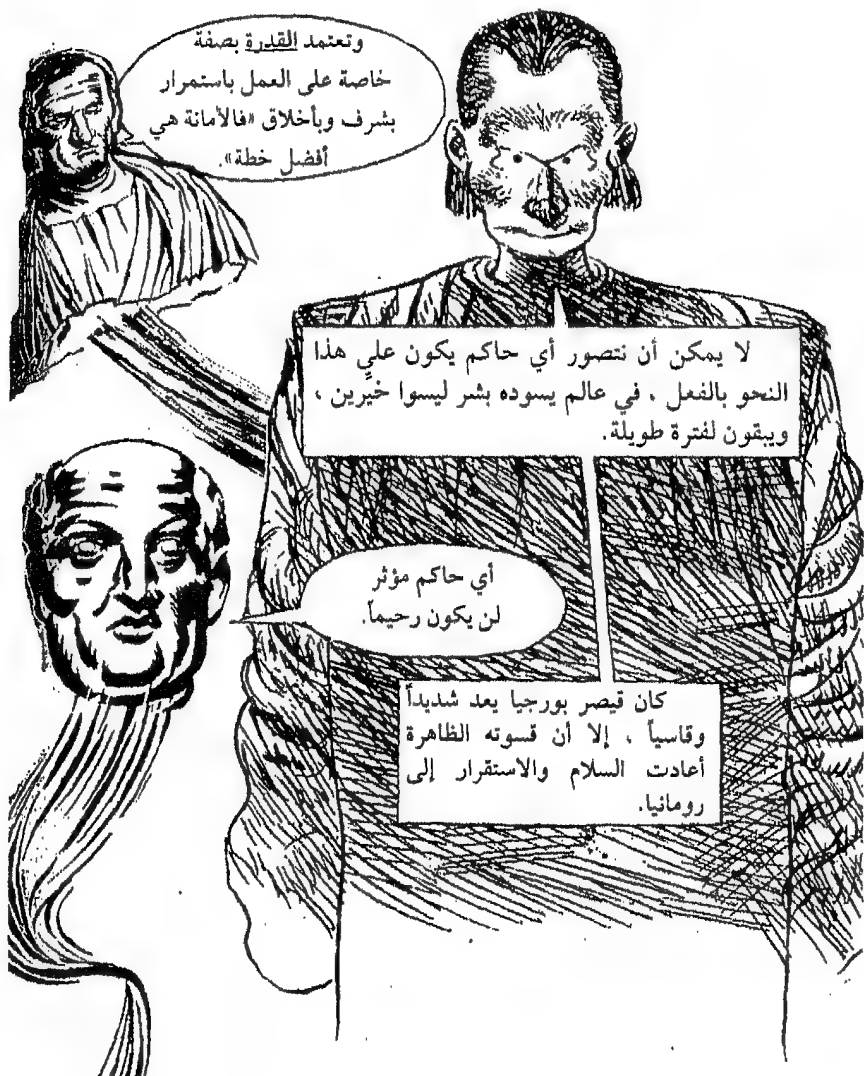 وتعتمد القدرة بصفة
خاصة على العمل باستمرار
بشرف وبأخلاق «فالأمانة هي
أفضل خطة».
لا يمكن أن نتصور أي حاكم يكون على هذا
النحو بالفعل ، في عالم يسوده بشر ليسوا خيِّرين ،
ويبقون لفترة طويلة.
أي حاكم مؤثر
لن يكون رحيماً.
كان قيصر بورجيا يعد شديداً
وقاسياً ، إلا أن قسوته الظاهرة
أعادت السلام والاستقرار إلى
رومانيا.